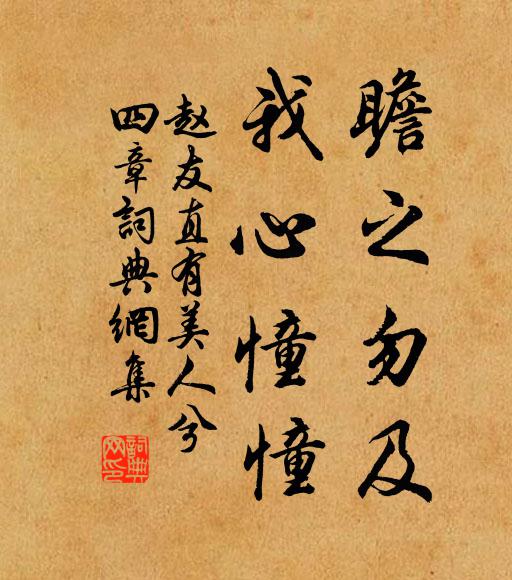 瞻之勿及
我心憧憧
赵友直有美人兮
四章詞典網集
詞典
网印